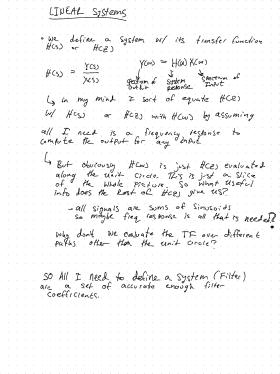 LINEAR Systems
• We define a System w/ its transfer function
H(s) or H(z)
H(s) = Y(s) / X(s)
Y(ω) = H(ω) X(ω)
spectrum of Output
System response
spectrum of Input
↳ in my mind I sort of equate H(z)
w/ H(s) or H(z) with H(ω) by assuming
all I need is a frequency response to
compute the output for any input
↳ But obviously H(ω) is just H(z) evaluated
along the unit circle. This is just a slice
of the whole picture. So what useful
info does the rest of H(z) give us?
- all signals are sums of sinusoids
so maybe freq response is all that is needed?
why don't we evaluate the TF over different
paths other than the unit circle?
SO All I need to define a system (Filter)
are a set of accurate enough filter
coefficients.